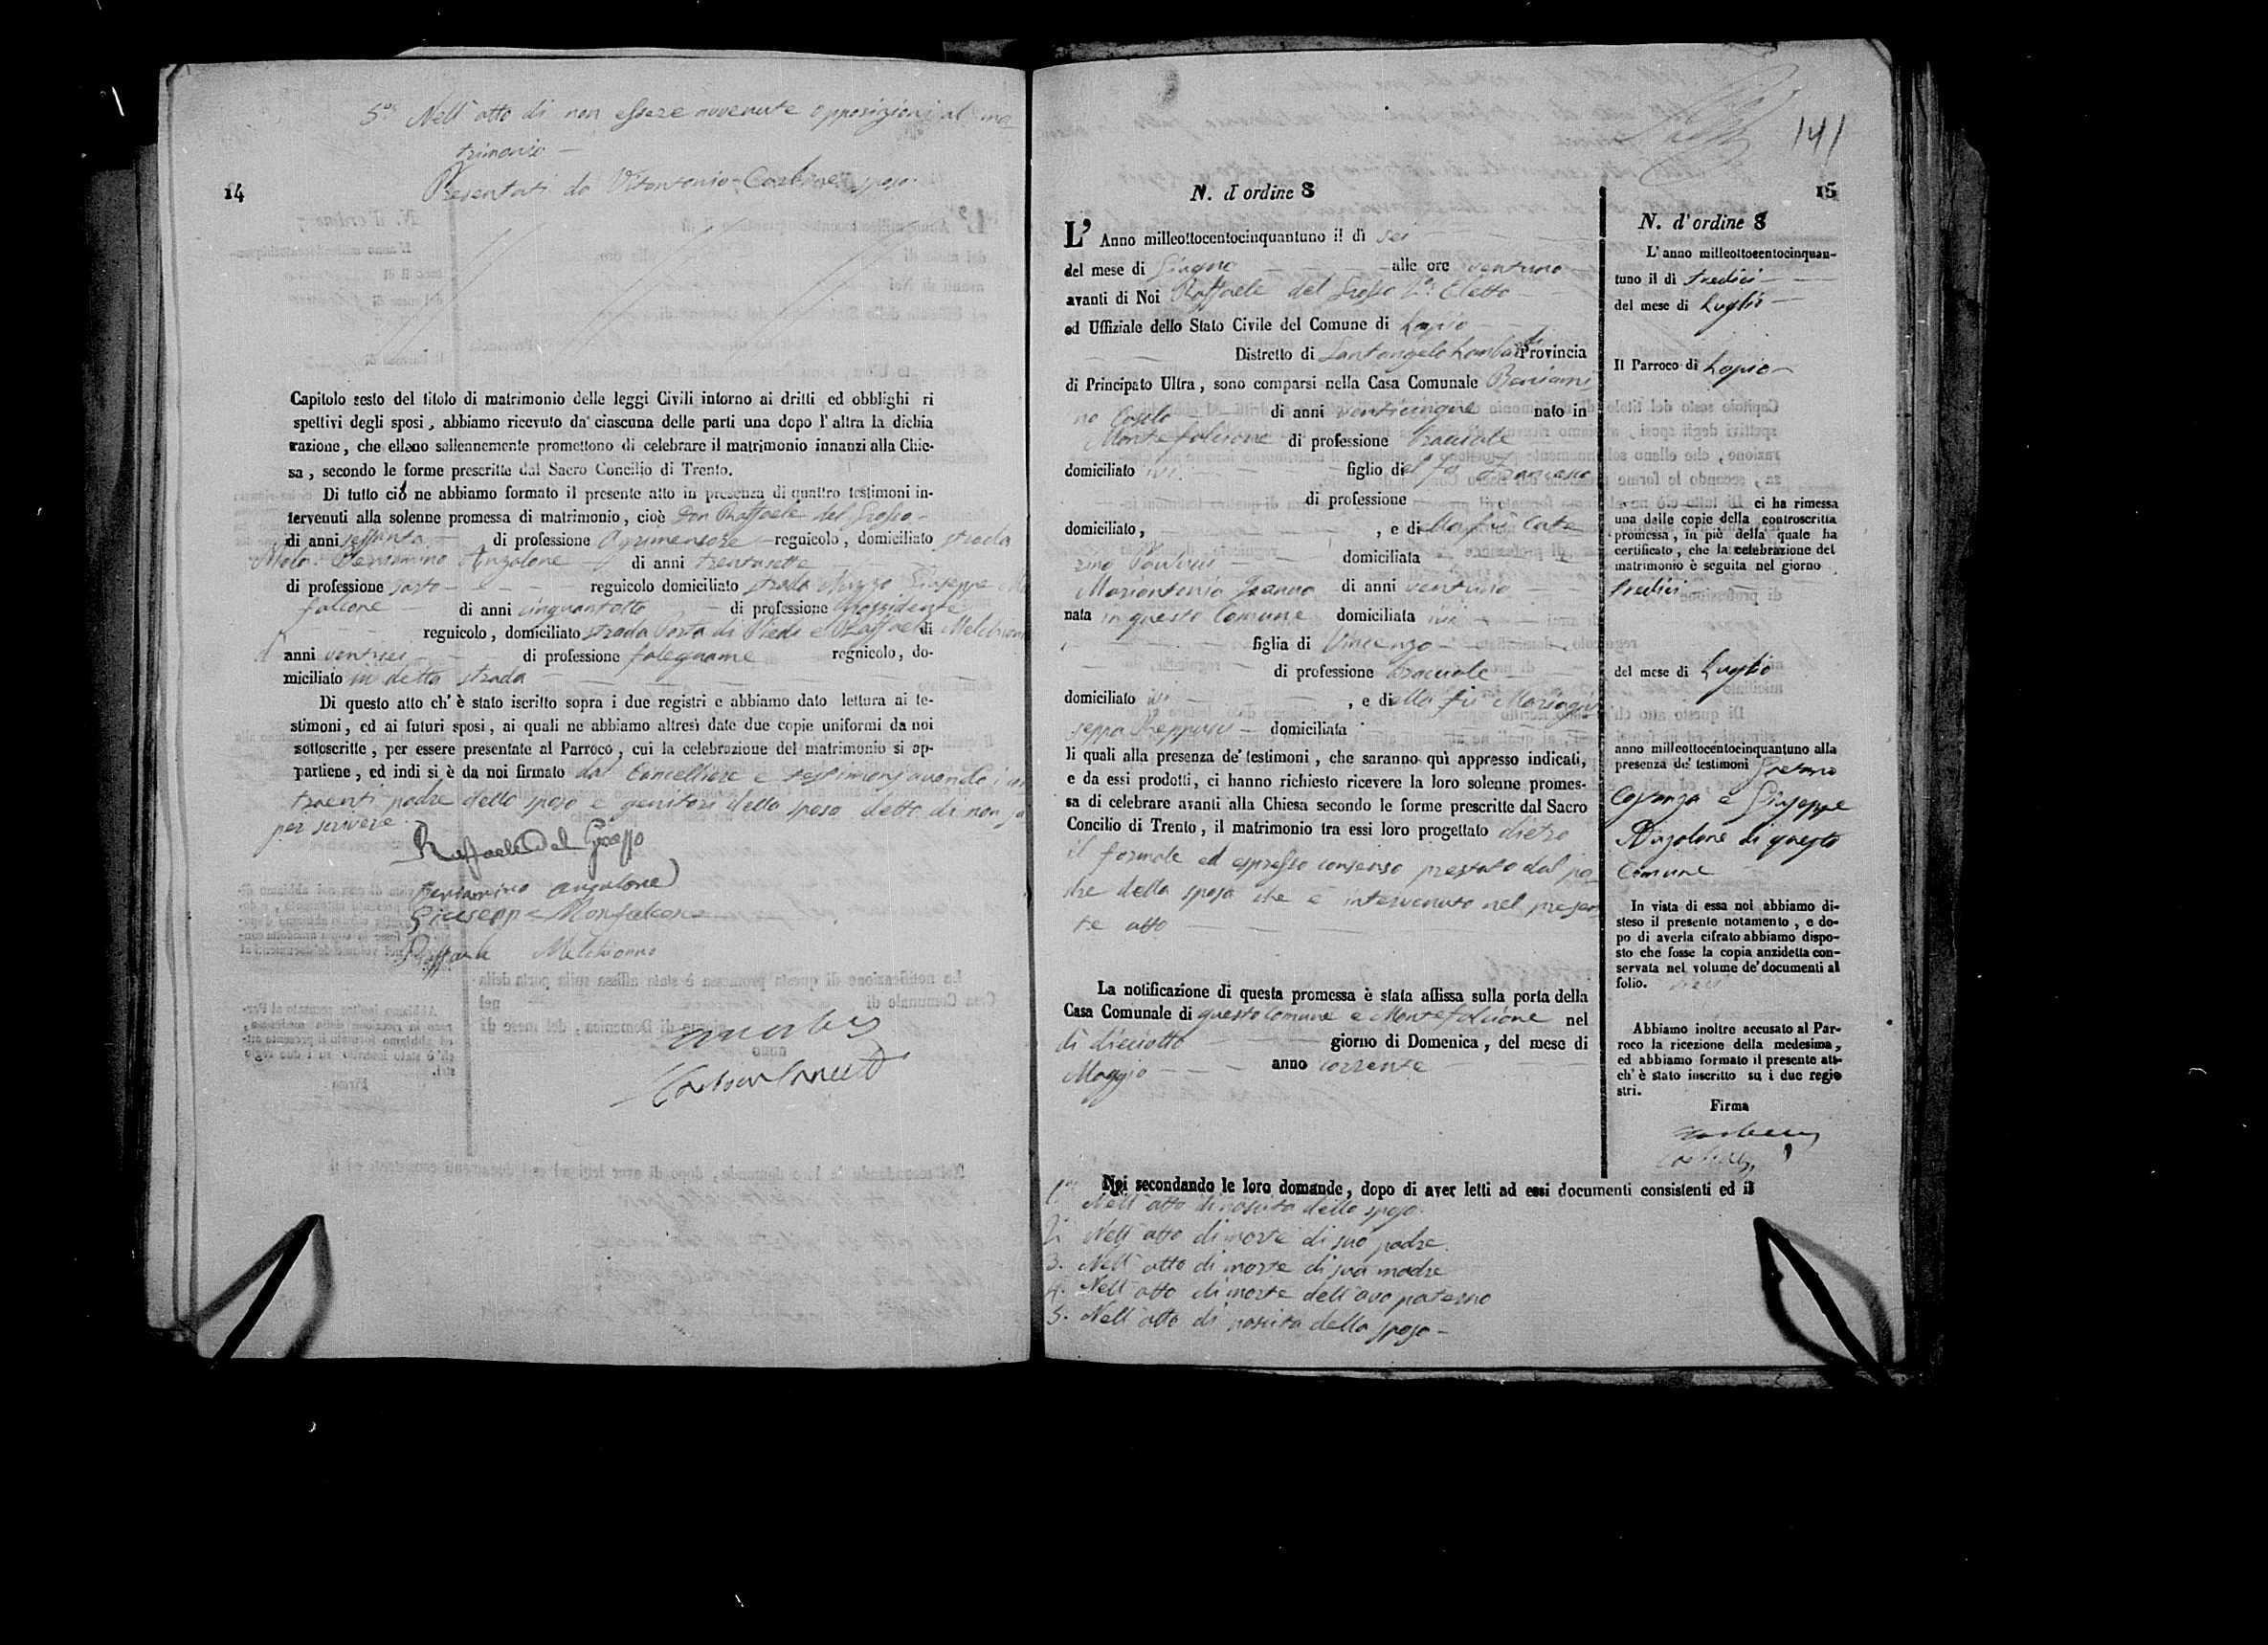 5° Nell'atto di non essere avvenute opposizioni al ma
trimonio —
Presentati da Vitantonio Carbone sposo.
14
Capitolo sesto del titolo di matrimonio delle leggi Civili intorno ai dritti ed obblighi ri
spettivi degli sposi, abbiamo ricevuto da' ciascuna delle parti una dopo l'altra la dichia
razione, che elleno sollennemente promettono di celebrare il matrimonio innanzi alla Chie-
sa, secondo le forme prescritte dal Sacro Concilio di Trento.
Di tutto ciò ne abbiamo formato il presente atto in presenza di quattro testimoni in-
tervenuti alla solenne promessa di matrimonio, cioè Don Raffaele del Grosso
di anni sessanta di professione Agrimensore regnicolo, domiciliato strada
Beniamino Anzalone di anni trentasette
di professione sarto regnicolo domiciliato strada Giuseppe
falcone di anni cinquantotto di professione Possidente
regnicolo, domiciliato strada Porta di Piedi e Raffaele di Melchionno
anni ventisei di professione falegname regnicolo, do-
miciliato in detta strada
Di questo atto ch'è stato iscritto sopra i due registri e abbiamo dato lettura ai te-
stimoni, ed ai futuri sposi, ai quali ne abbiamo altresì date due copie uniformi da noi
sottoscritte, per essere presentate al Parroco, cui la celebrazione del matrimonio si ap-
partiene, ed indi si è da noi firmato dal Cancelliere e testimonj avendo i con
traenti padre dello sposo e genitori della sposa detto di non sa
per scrivere.
Raffaele Del Grosso
Beniamino Anzalone
Giuseppe Monfalcone
Raffaele Melchionno
141
15
N. d'ordine 8
L' Anno milleottocentocinquantuno il dì sei
del mese di Giugno alle ore ventuno
avanti di Noi Raffaele del Grosso 2° Eletto
ed Uffiziale dello Stato Civile del Comune di Lapio
Distretto di Santangelo Lombardi Provincia
di Principato Ultra, sono comparsi nella Casa Comunale Beniami
no di anni venticinque nato in
Montefalcione di professione bracciale
domiciliato ivi figlio del fu Francesco
di professione
domiciliato, , e della fu Cate
rina domiciliata
Mariantonia di anni ventuno
nata in questo Comune domiciliata ivi
figlia di Vincenzo
di professione bracciale
domiciliato ivi , e della fu Mariagiu
seppa domiciliata
li quali alla presenza de' testimoni, che saranno quì appresso indicati,
e da essi prodotti, ci hanno richiesto ricevere la loro solenne promes-
sa di celebrare avanti alla Chiesa secondo le forme prescritte dal Sacro
Concilio di Trento, il matrimonio tra essi loro progettato dietro
il formale ed espresso consenso prestato dal pa
dre della sposa che è intervenuto nel presen
te atto
La notificazione di questa promessa è stata affissa sulla porta della
Casa Comunale di questo Comune e Montefalcione nel
dì dieciotto giorno di Domenica, del mese di
Maggio anno corrente
Noi secondando le loro domande, dopo di aver letti ad essi documenti consistenti ed il
1° Nell'atto di nascita dello sposo.
2. Nell'atto di morte di suo padre.
3. Nell'atto di morte di sua madre
4. Nell'atto di morte dell'avo paterno
5. Nell'atto di nascita della sposa —
N. d'ordine 8
L'anno milleottocentocinquan-
tuno il dì tredici
del mese di Luglio
Il Parroco di Lapio
ci ha rimessa
una delle copie della controscritta
promessa, in piè della quale ha
certificato, che la celebrazione del
matrimonio è seguita nel giorno
tredici
del mese di Luglio
anno milleottocentocinquantuno alla
presenza de' testimoni Gaetano
Costanza e Giuseppe
Anzalone di questo
Comune
In vista di essa noi abbiamo di-
steso il presente notamento, e do-
po di averla cifrato abbiamo dispo-
sto che fosse la copia anzidetta con-
servata nel volume de' documenti al
folio.
Abbiamo inoltre accusato al Par-
roco la ricezione della medesima,
ed abbiamo formato il presente att-
ch'è stato inscritto su i due regio
stri.
Firma